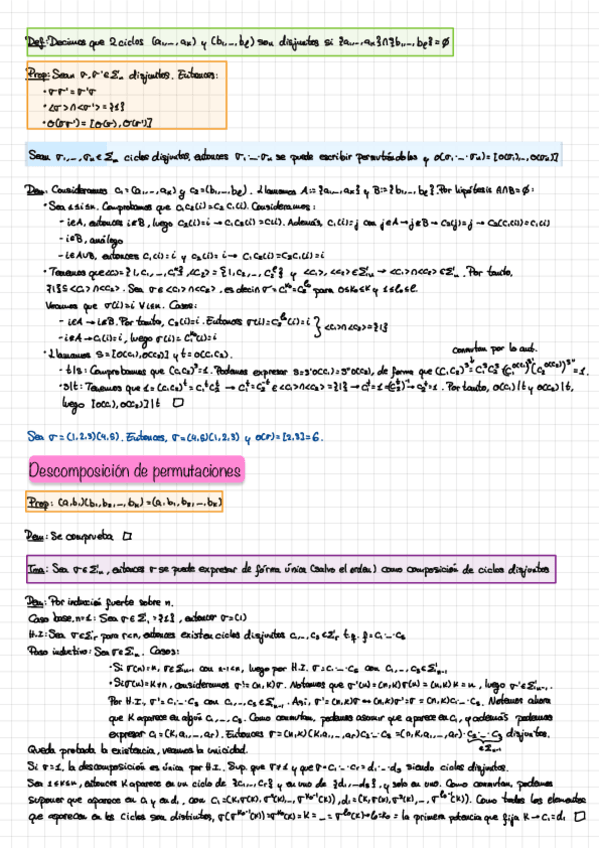 Def: Decimos que 2 ciclos (a₁,...,aₖ) y (b₁,...,bₗ) son disjuntos si {a₁,...,aₖ}∩{b₁,...,bₗ}=∅
Prop: Sean σ,σ'∈Σₙ disjuntos. Entonces:
· σσ'=σ'σ
· <σ>∩<σ'>={1}
· O(σσ')=[O(σ),O(σ')]
Sean σ₁,...,σₙ∈Σₙ ciclos disjuntos, entonces σ₁·...·σₙ se puede escribir permutándolos y O(σ₁·...·σₙ)=[O(σ₁),...,O(σₙ)]
Dem: Consideramos c₁=(a₁,...,aₖ) y c₂=(b₁,...,bₗ). Llamamos A:={a₁,...,aₖ} y B:={b₁,...,bₗ}. Por hipótesis A∩B=∅:
· Sea 1≤i≤n. Comprobamos que c₁c₂(i)=c₂c₁(i). Consideramos:
- i∈A, entonces i∉B, luego c₂(i)=i → c₁c₂(i)=c₁(i). Además, c₁(i)=j con j∈A→j∉B→c₂(j)=j→c₂(c₁(i))=c₁(i)
- i∈B, análogo
- i∉A∪B, entonces c₁(i)=i y c₂(i)=i → c₁c₂(i)=c₂c₁(i)=i
· Tenemos que <c₁>={1,c₁,...}, <c₂>={1,c₂,...} y <c₁>,<c₂>∈Σₙ → <c₁>∩<c₂>∈Σₙ. Por tanto,
{1}≤<c₁>∩<c₂>. Sea σ∈<c₁>∩<c₂>, es decir σ=c₁^k₀=c₂^l₀ para 0≤k₀≤k y 1≤l₀≤l.
Veamos que σ(i)=i ∀i≤n. Casos:
- i∈A→i∉B. Por tanto, c₂(i)=i. Entonces σ(i)=c₂^l₀(i)=i
- i∉A→c₁(i)=i, luego σ(i)=c₁^k₀(i)=i } <c₁>∩<c₂>={1}
· Llamamos s=[O(c₁),O(c₂)] y t=O(c₁c₂).
conmutan por lo ant.
- t|s: Comprobamos que (c₁c₂)^s=1. Podemos expresar s=s'O(c₁)=s''O(c₂), de forma que (c₁c₂)^s=c₁^s c₂^s=(c₁^O(c₁))^s'(c₂^O(c₂))^s''=1.
- s|t: Tenemos que 1=(c₁c₂)^t=c₁^t c₂^t → c₁^t=c₂^-t∈<c₁>∩<c₂>={1} → c₁^t=1=c₂^-t→c₂^t=1. Por tanto, O(c₁)|t y O(c₂)|t,
luego [O(c₁),O(c₂)]|t □
Sea σ=(1,2,3)(4,5). Entonces, σ=(4,5)(1,2,3) y O(σ)=[2,3]=6.
Descomposición de permutaciones
Prop: (a,b₁)(b₁,b₂,...,bₖ)=(a,b₁,b₂,...,bₖ)
Dem: Se comprueba □
Tma: Sea σ∈Σₙ, entonces σ se puede expresar de forma única (salvo el orden) como composición de ciclos disjuntos
Dem: Por inducción fuerte sobre n.
Caso base. n=1: Sea σ∈Σ₁={1}, entonces σ=(1)
H.I: Sea σ∈Σᵣ para r<n, entonces existen ciclos disjuntos c₁,...,cₛ∈Σᵣ t.q. σ=c₁·...·cₛ
Paso inductivo: Sea σ∈Σₙ. Casos:
· Si σ(n)=n, σ∈Σₙ₋₁ con n-1<n, luego por H.I. σ=c₁·...·cₛ con c₁,...,cₛ∈Σₙ₋₁
· Si σ(n)=k≠n, consideramos σ'=(n,k)σ. Notamos que σ'(n)=(n,k)σ(n)=(n,k)k=n, luego σ'∈Σₙ₋₁.
Por H.I, σ'=c₁·...·cₛ con c₁,...,cₛ∈Σₙ₋₁. Así, σ'=(n,k)σ ↔ (n,k)σ'=σ=(n,k)c₁·...·cₛ. Notemos ahora
que k aparece en algún c₁,...,cₛ. Como conmutan, podemos asumir que aparece en c₁, y además podemos
expresar c₁=(k,a₁,...,aᵣ). Entonces σ=(n,k)(k,a₁,...,aᵣ)c₂·...·cₛ=(n,k,a₁,...,aᵣ)·c₂·...·cₛ disjuntos.
∈Σₙ₋₁
Queda probada la existencia, veamos la unicidad.
Si σ=1, la descomposición es única por H.I. Sup. que σ≠1 y que σ=c₁·...·cᵣ=d₁·...·dₛ siendo ciclos disjuntos.
Sea 1≤k≤n, entonces k aparece en un ciclo de {c₁,...,cᵣ} y en uno de {d₁,...,dₛ}, y solo en uno. Como conmutan, podemos
suponer que aparece en c₁ y en d₁, con c₁=(k,σ(k),σ²(k),...,σ^k₀-1(k)), d₁=(k,σ(k),σ²(k),...,σ^l₀-1(k)). Como todos los elementos
que aparecen en los ciclos son distintos, σ(σ^k₀-1(k))=σ^k₀(k)=k=...=σ^l₀(k)→l₀=k₀=la primera potencia que fija k→c₁=d₁ □